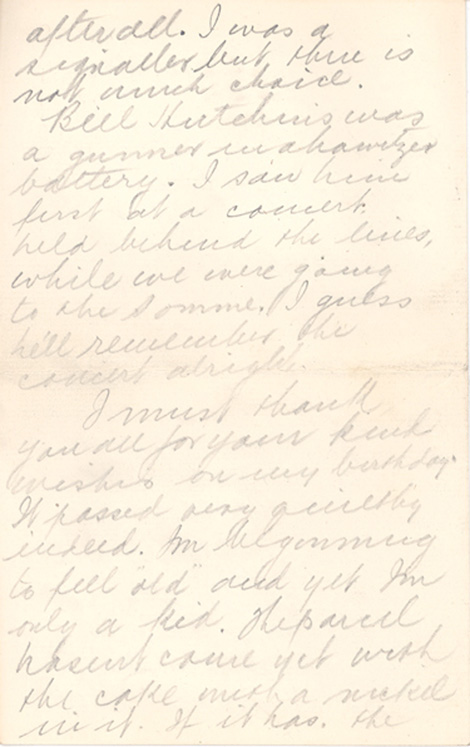 after all. I was a
signaller but there is
not much choice.
Bill Hutchins was
a gunner in a howitzer
battery. I saw him
first at a concert
held behind the lines,
while we were going
to the Somme. I guess
he'll remember the
concert alright.
I must thank
you all for your kind
wishes on my birthday.
It passed very quietly
indeed. Im begonning
to fell "old" and yet Im
only a kid. The parcel
hasent come yet with
the cake with a nickel
in it. If it has. the